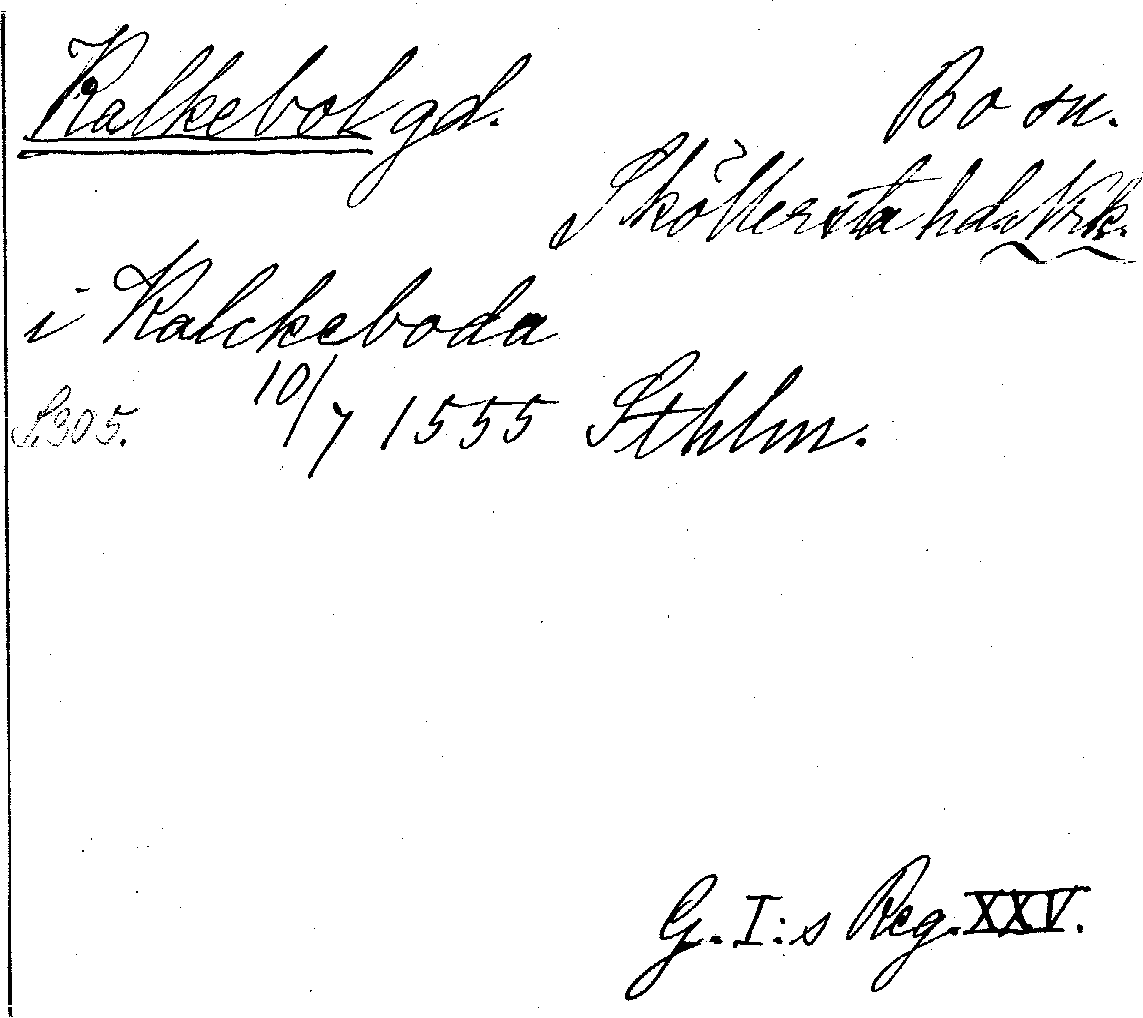 Kalkebol gd.
Bo sn.
Sköllersta hd. Nrk.
i Kalckeboda
S. 305. 10/7 1555 Sthlm.
G. I:s Reg. XXV.